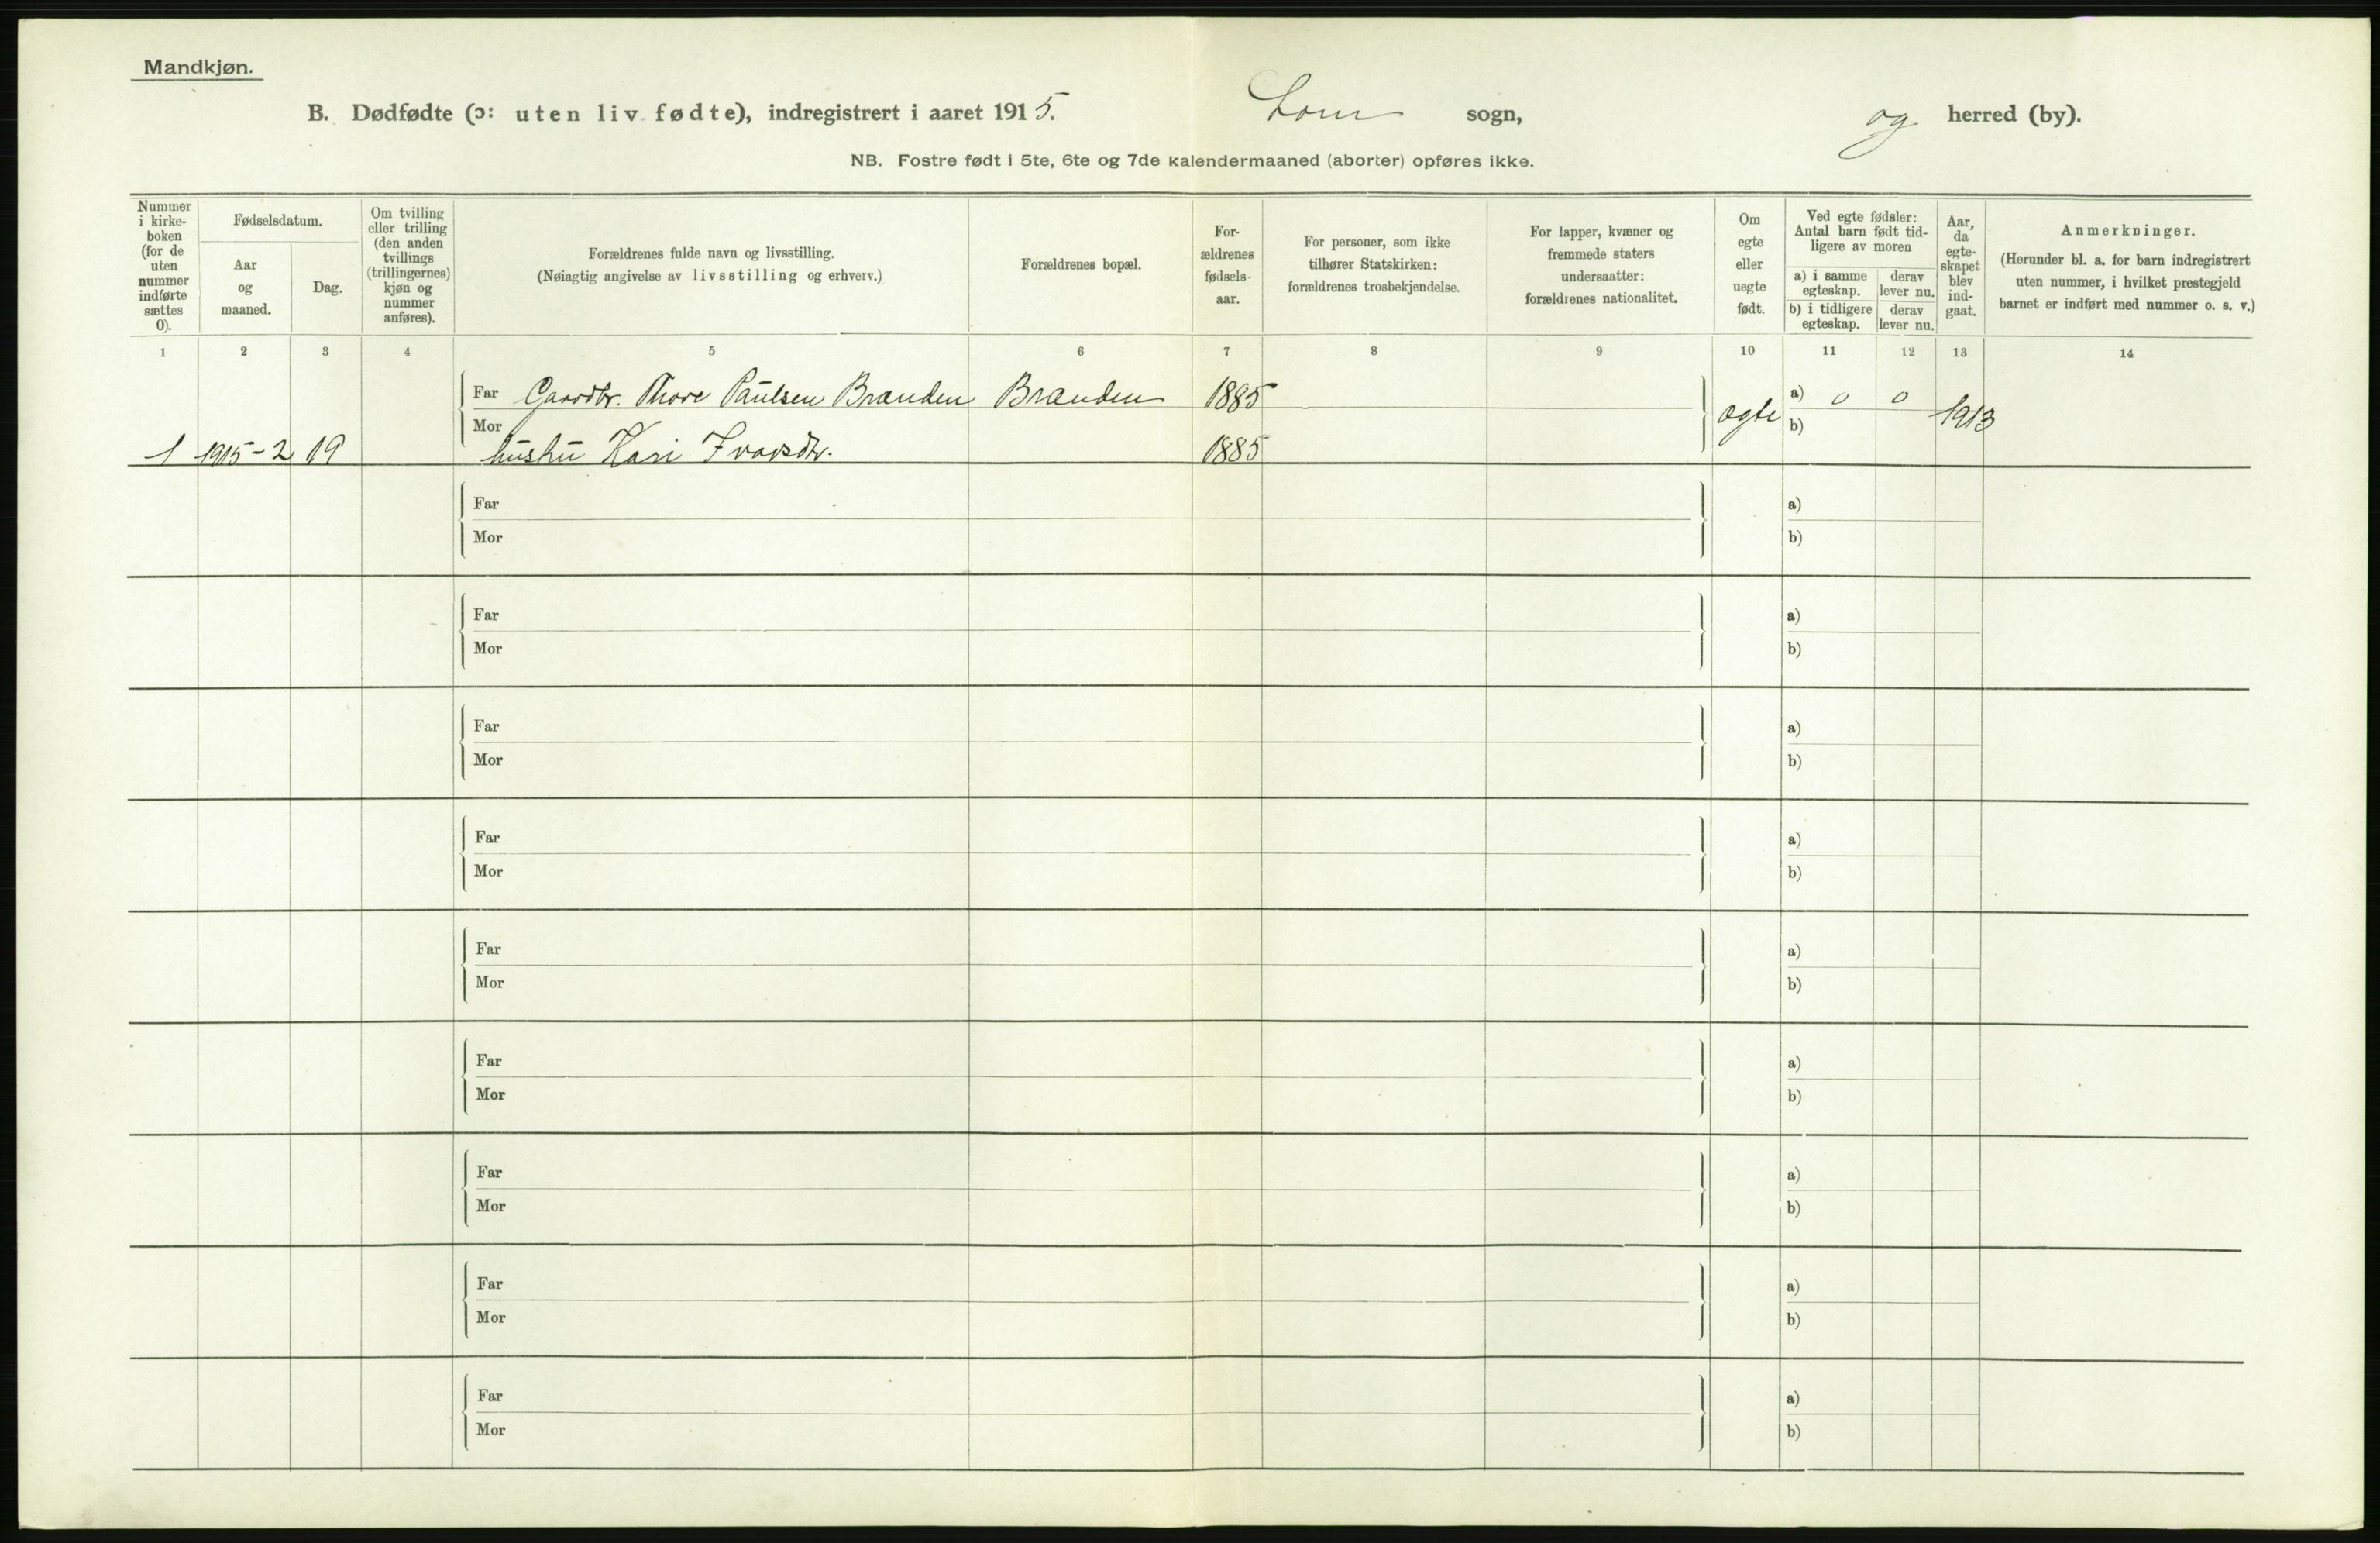 Mandkjøn.
B. Dødfødte (ɔ: uten liv fødte), indregistrert i aaret 1915. Lom sogn, og herred (by).
NB. Fostre født i 5te, 6te og 7de kalendermaaned (aborter) opføres ikke.
Nummer
i kirke-
boken
(for de
uten
nummer
indførte
sættes
0).
Fødselsdatum.
Aar
og
maaned.
Dag.
Om tvilling
eller trilling
(den anden
tvillings
(trillingernes)
kjøn og
nummer
anføres).
Forældrenes fulde navn og livsstilling.
(Nøiagtig angivelse av livsstilling og erhverv.)
Forældrenes bopæl.
For-
ældrenes
fødsels-
aar.
For personer, som ikke
tilhører Statskirken:
forældrenes trosbekjendelse.
For lapper, kvæner og
fremmede staters
undersaatter:
forældrenes nationalitet.
Om
egte
eller
uegte
født.
Ved egte fødsler:
Antal barn født tid-
ligere av moren
a) i samme
egteskap.
derav
lever nu.
b) i tidligere
egteskap.
derav
lever nu.
Aar,
da
egte-
skapet
blev
ind-
gaat.
Anmerkninger.
(Herunder bl. a. for barn indregistrert
uten nummer, i hvilket prestegjeld
barnet er indført med nummer o. s. v.)
1 2 3 4 5 6 7 8 9 10 11 12 13 14
Far Gaardbr. Thore Paulsen Brænden Brænden 1885 a) 0 0
Mor ægte b) 1913
1 1915-2 19 hustru Kari Ivarsdtr. 1885
Far a)
Mor b)
Far a)
Mor b)
Far a)
Mor b)
Far a)
Mor b)
Far a)
Mor b)
Far a)
Mor b)
Far a)
Mor b)
Far a)
Mor b)
Far a)
Mor b)